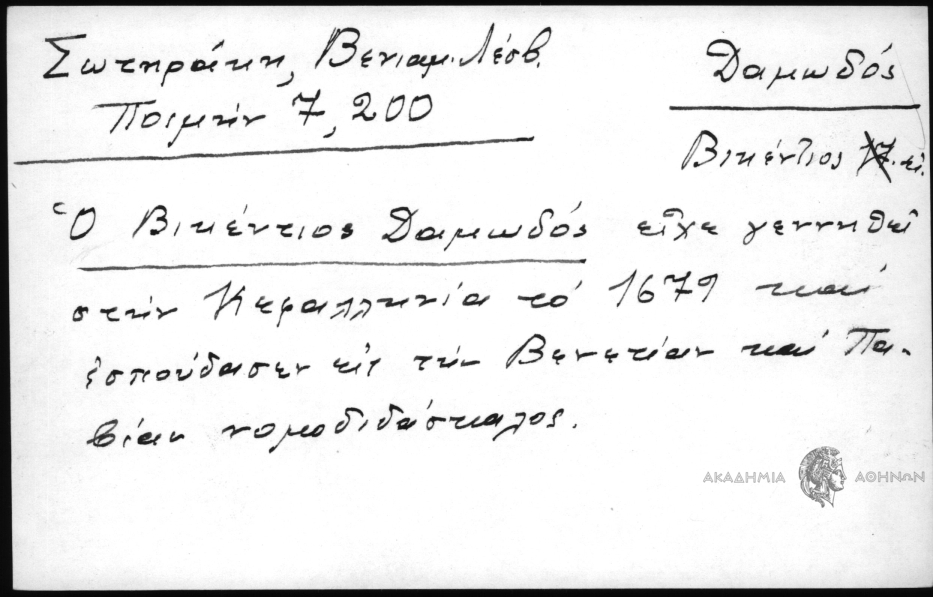 Σωτηράκη, Βενιαμ. Λέσβ.
Ποιμήν 7, 200
Δαμωδός
Βικέντιος
Ὁ Βικέντιος Δαμωδός εἶχε γεννηθεῖ
στήν Κεφαλληνία τό 1679 καί
ἐσπούδασεν εἰς τήν Βενετίαν καί Πα-
βίαν νομοδιδάσκαλος.
ΑΚΑΔΗΜΙΑ ΑΘΗΝΩΝ